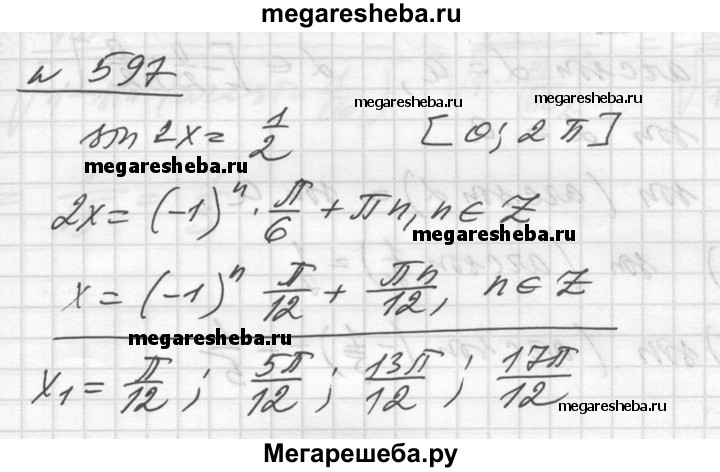 megaresheba.ru
№ 597
sin 2x = 1/2 megaresheba.ru [0; 2π] megaresheba.ru
megaresheba.ru
2x = (-1)^n · π/6 + πn, n ∈ Z
megaresheba.ru
x = (-1)^n π/12 + πn/12, n ∈ Z
megaresheba.ru
x₁ = π/12 ; 5π/12 ; 13π/12 ; 17π/12
megaresheba.ru
Мегарешеба.ру